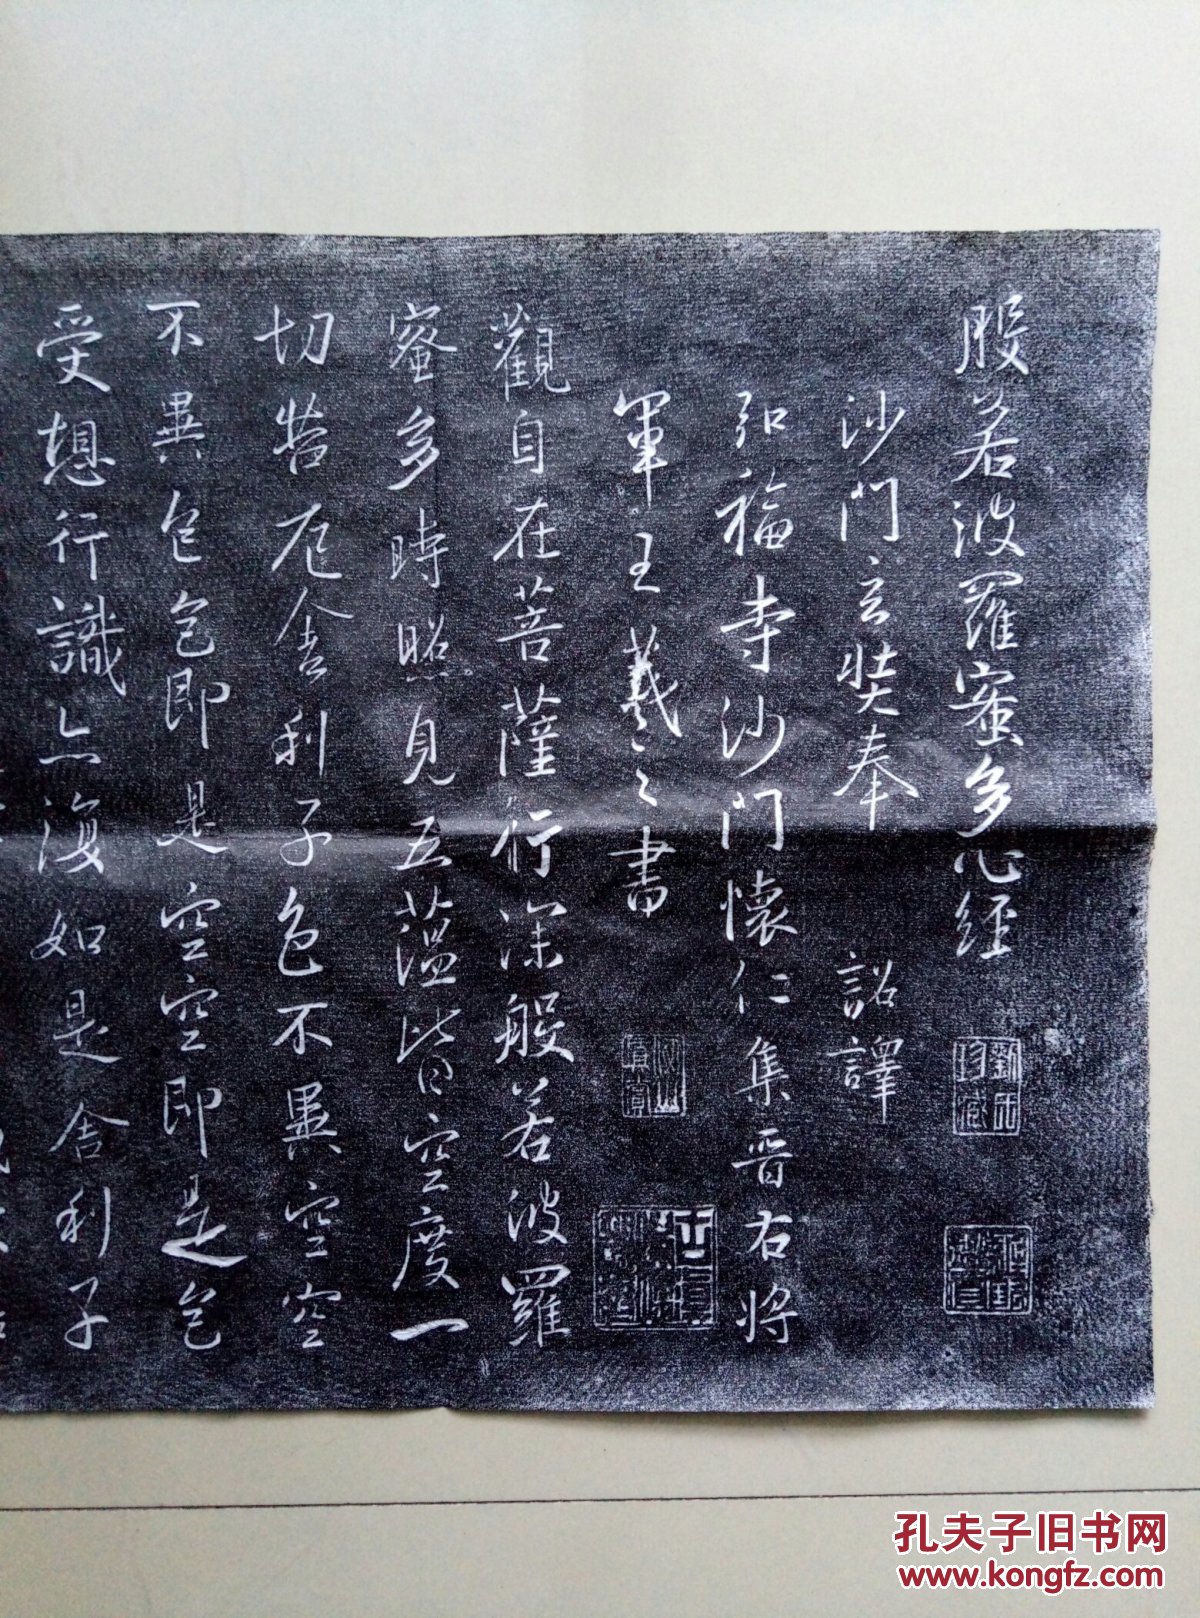 般若波羅蜜多心經
沙門玄奘奉 詔譯
弘福寺沙門懷仁集晉右將
軍王羲之書
觀自在菩薩行深般若波羅
蜜多時照見五蘊皆空度一
切苦厄舍利子色不異空空
不異色色即是空空即是色
受想行識亦復如是舍利子
孔夫子旧书网
www.kongfz.com